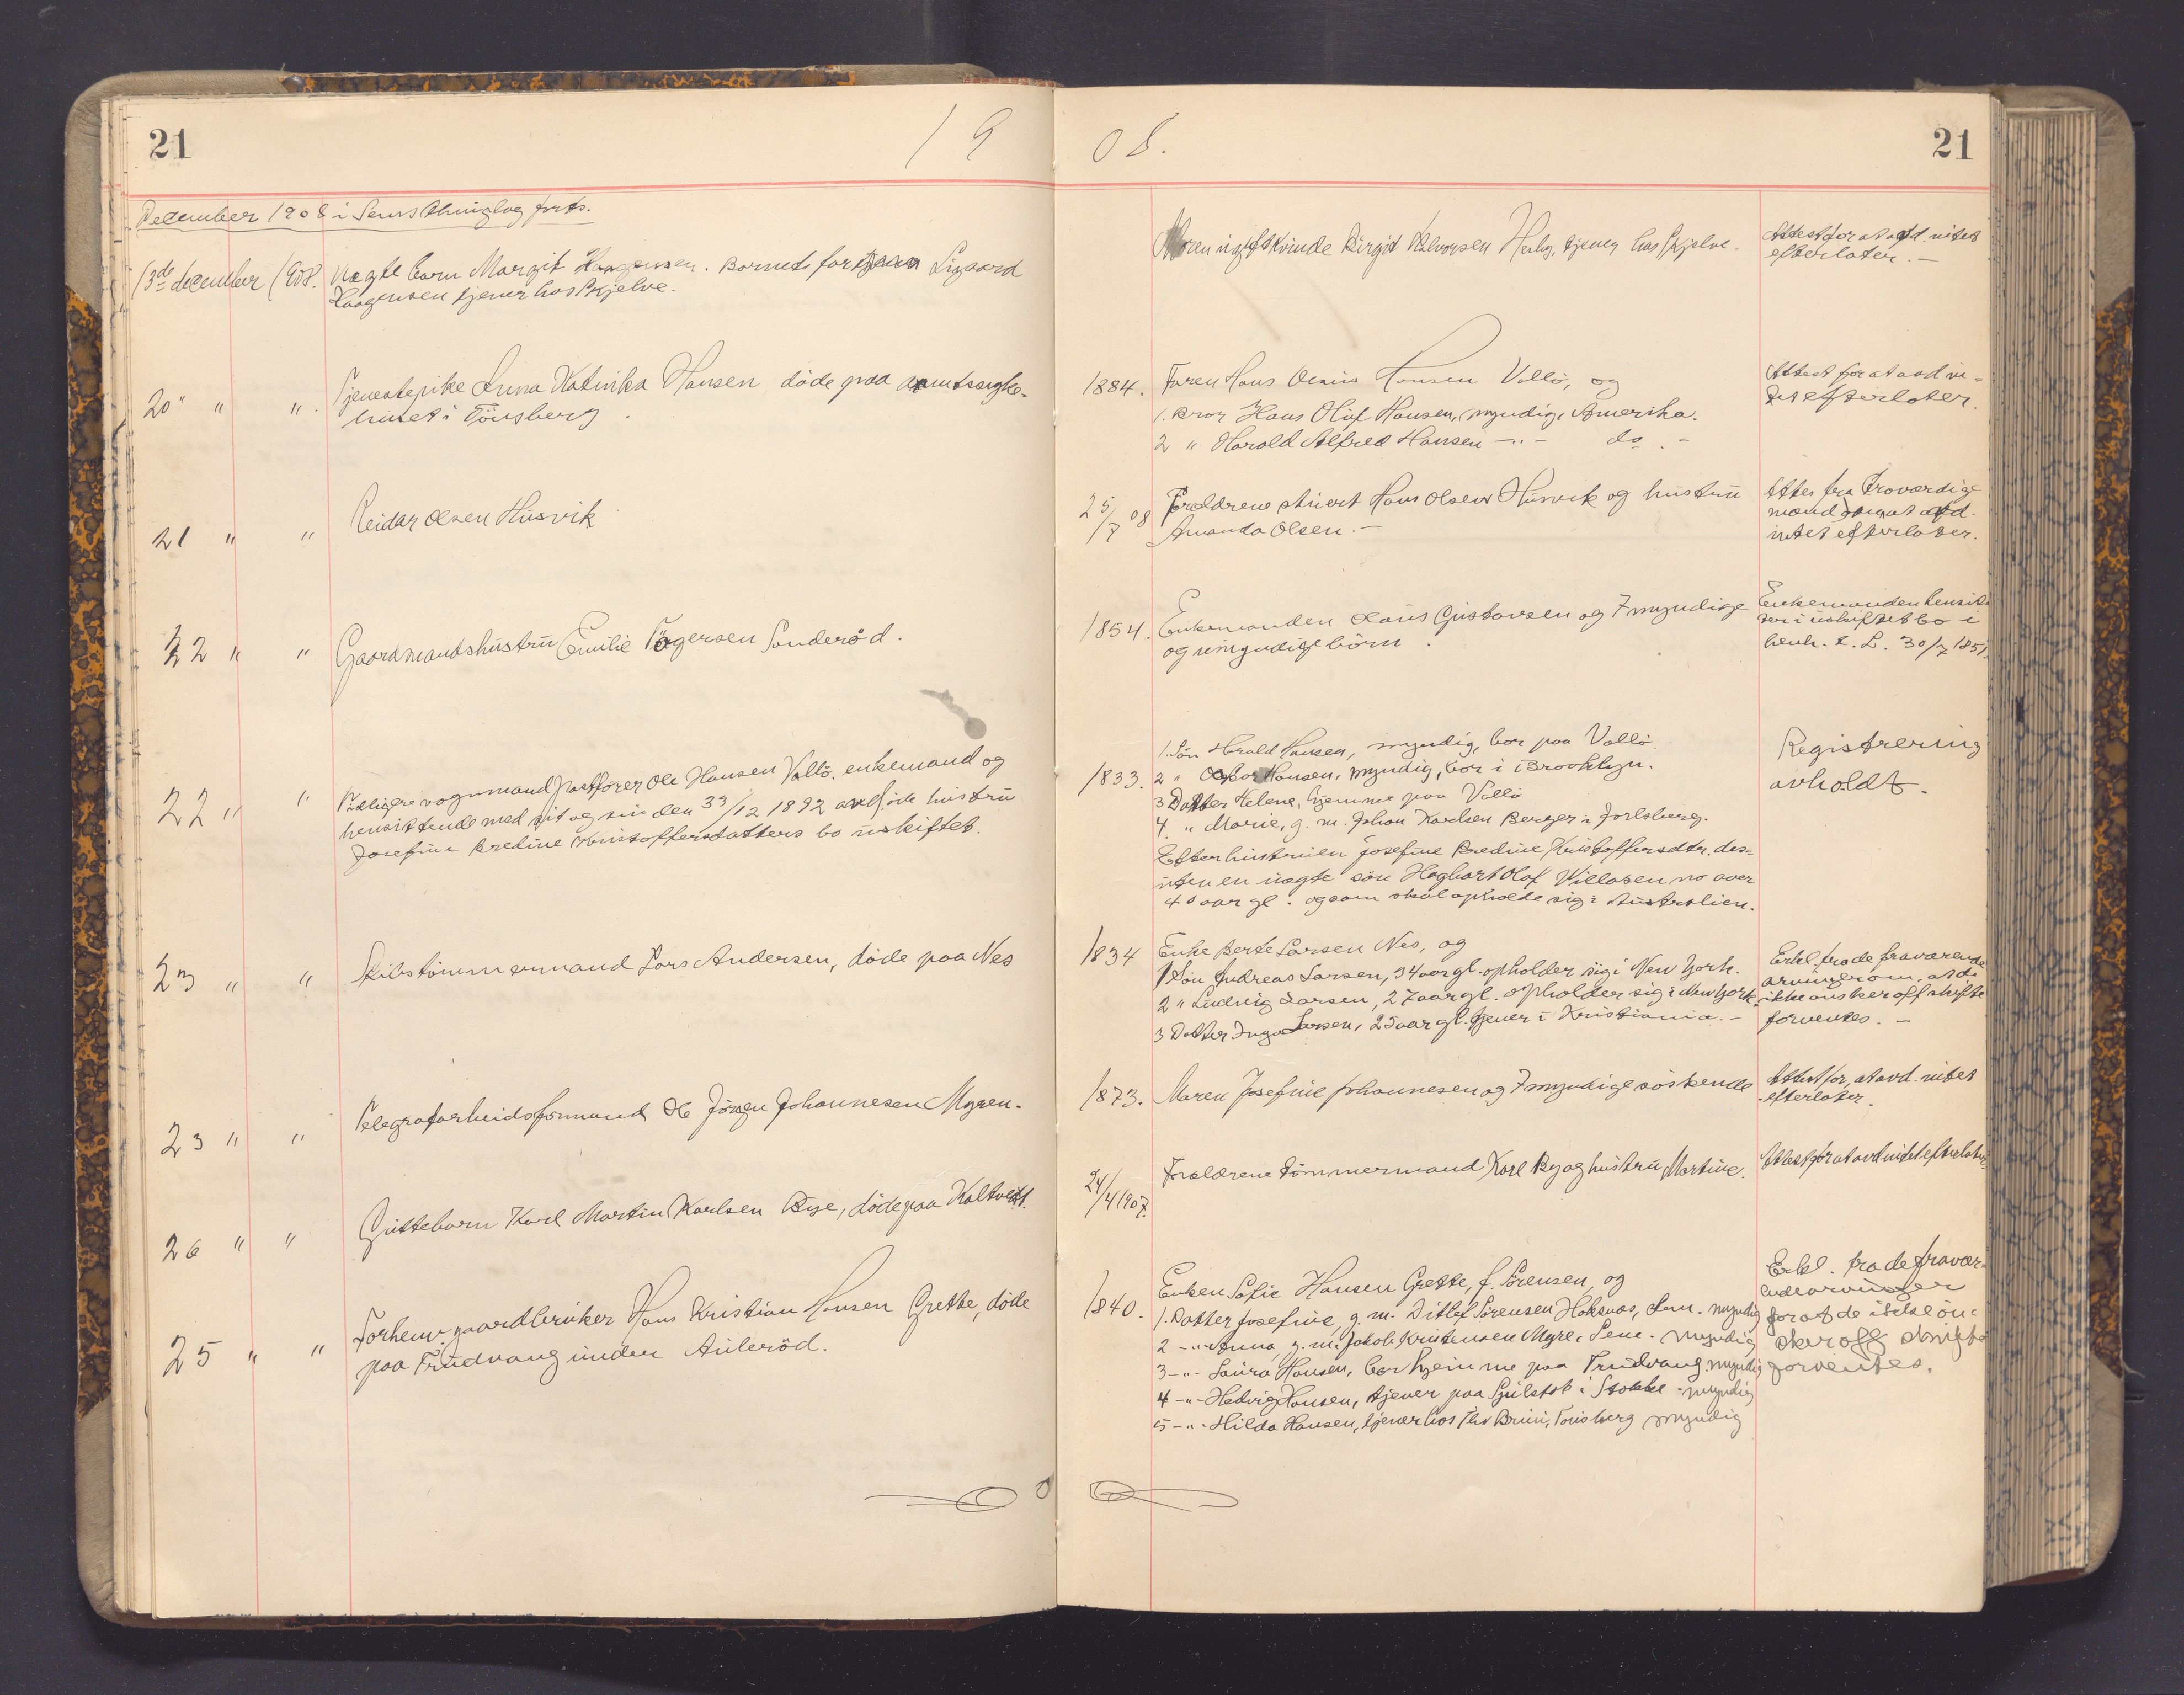 21
19
08.
21
December 1908 i Sems thinglag forts.
13de december 1908. Uægte barn Margit Haagensen. Barnets far Sigaard
Haagensen tjener hos Skjelve.
Moren ugift kvinde Birgit Halvorsen tjener hos Skjelve.
Attest for at avd. intet
efterlater. –
20 " " Tjenestepike Anna Katinka Hansen døde paa amtssyke-
huset i Tönsberg.
1884. Faren Hans Hansen Vallö, og
1. Bror Hans Oluf Hansen, myndig, Amerika.
2 " Harald Alfred Hansen – " – do. –
Attest for at avd in-
tet efterlater.
21 " " Reidar Olsen Husvik
25/7 08 Forældrene stuert Hans Olsen Husvik og hustru
Amanda Olsen. –
Attes fra troværdige
mænd for at avd.
intet efterlater.
22 " " Gaardmandshustru Emilie Sanderød.
1854. Enkemanden Gustavsen og 7 myndige
og umyndige børn.
Enkemanden hensid-
der i uskiftet bo i
henh. t. L. 30/7 1851.
22 " " Tidligere vognmand Postfører Ole Hansen Vallö. enkemand og
hensittende med sit og sin den /12 1892 avdøde hustru
Josefine Bredine Kristoffersdatters bo uskiftet.
1833. 1. Sön Harald Hansen, myndig, bor paa Vallö
2 " Oskar Hansen, myndig, bor i Brooklyn.
3 Datter Helene, hjemme paa Vallö
4. " Marie, g. m. Johan Karlsen Berger i Jarlsberg.
Efter hustruen Josefine Bredine Kristoffersdtr. des-
uten en uægte sön Hagbart Olaf Willasen no over
40 aar gl. og som skal opholde sig i Australien.
Registrering
avholdt.
23 " " Skibstömmermand Lars Andersen, döde paa Nes
1834 Enke Berte Larsen Nes, og
1 Sön Andreas Larsen, 34 aar gl. opholder sig i New York.
2 " Ludvig Larsen, 27 aar gl. opholder sig i New York.
3 Datter Inga Larsen, 25 aar gl. tjener i Kristiania. –
Erkl. fra de fraværende
arvinger om, at de
ikke önsker off skifte
forventes. –
23 " " Telegrafarbeidsformand Ole Jörgen Johannesen Myren.
1873. Maren Josefine Johannesen og 7 myndige söskende
Attest for, at avd. intet
efterlater.
26 " " Guttebarn Karl Martin Karlsen Bye, döde paa Kaltvedt.
24/4 1907. Forældrene tömmermand Karl By og hustru Martine.
Attest for at avd intet efterlater.
25 " " Forhenv. gaardbruker Hans Kristian Hansen Grette, döde
paa Trudvang under Auleröd.
1840. Enken Sofie Hansen Grette, f. Sörensen, og
1. Datter Josefine, g. m. Ditlef Sörensen Haksnas, Sem. myndig
2 – " – Anna, g. m. Jakob Kristensen Myre, Sem. – myndig
3 – " – Laura Hansen, bor hjemme paa Trudvang. myndig
4 – " – Hedvig Hansen, tjener paa i Stokke – myndig
5 – " – Hilda Hansen, tjener hos Thv Bruu, Tönsberg myndig
Erkl. fra de fravær-
ende arvinger
for at de ikke ön-
sker off skifte
forventes.